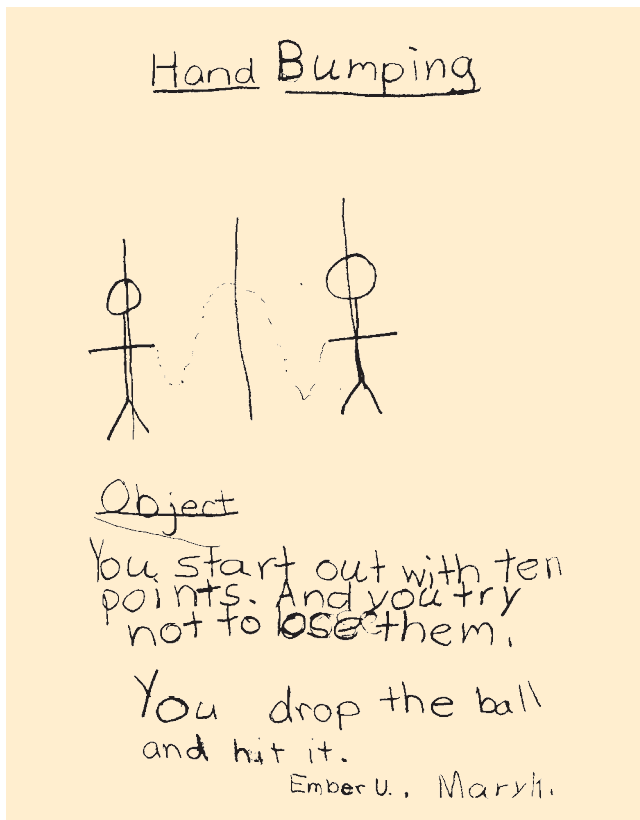 Hand Bumping
Object
You start out with ten
points. And you try
not to lose them.
You drop the ball
and hit it.
Ember U., Mary h.